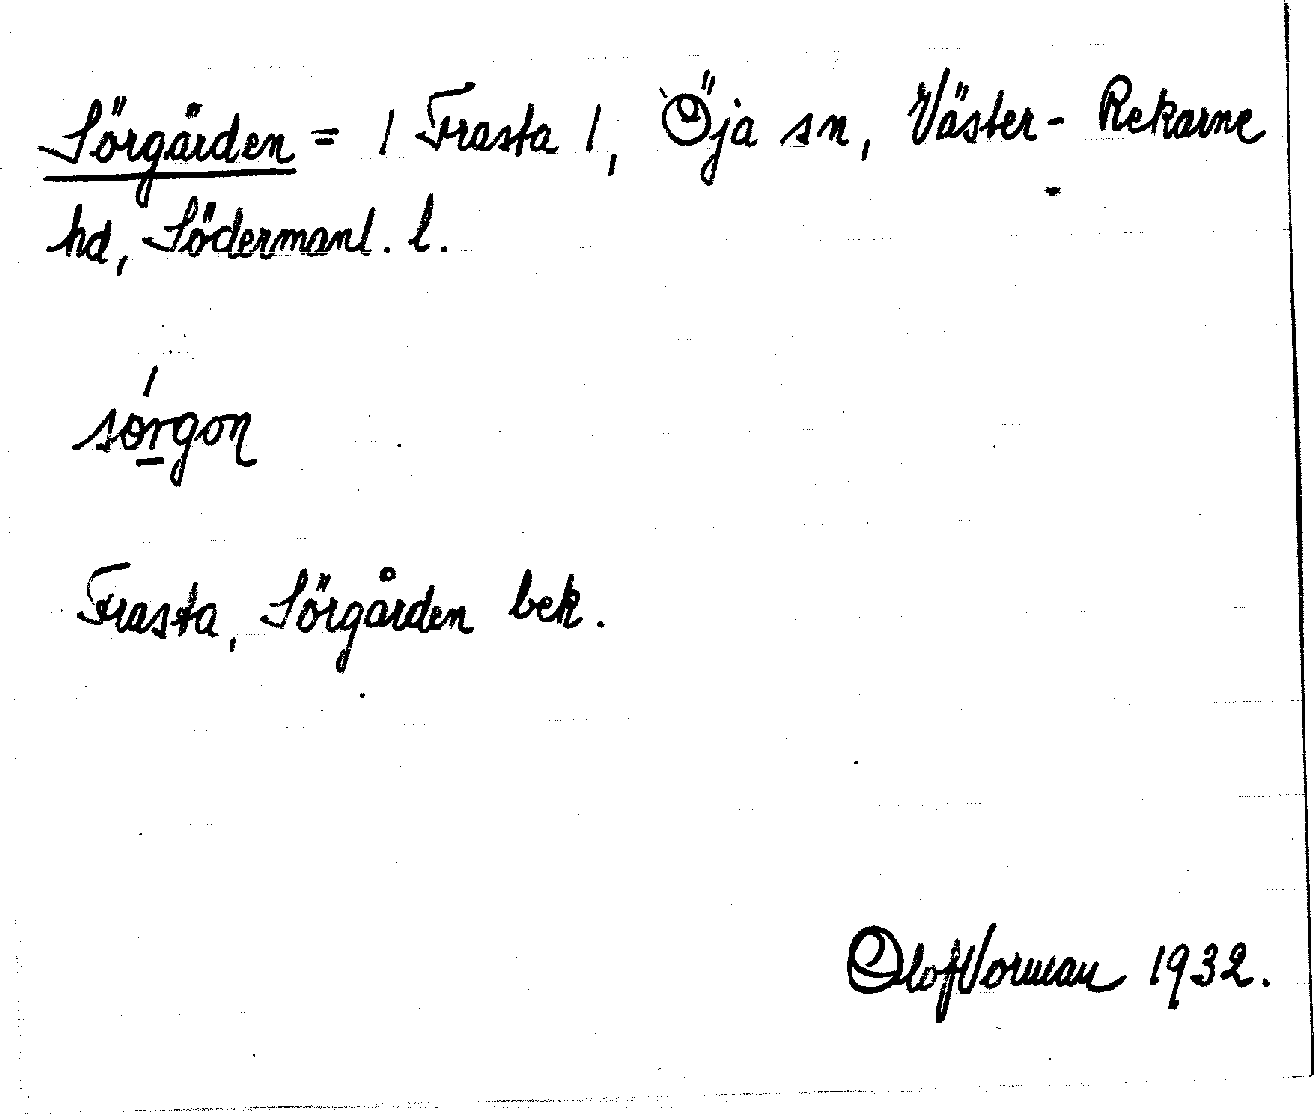 Sörgärden = / Frasta /, Öja sn, Väster-Rekarne
hd, Södermanl. l.
sörgon
Frasta, Sörgården bek.
Olof Vorman 1932.